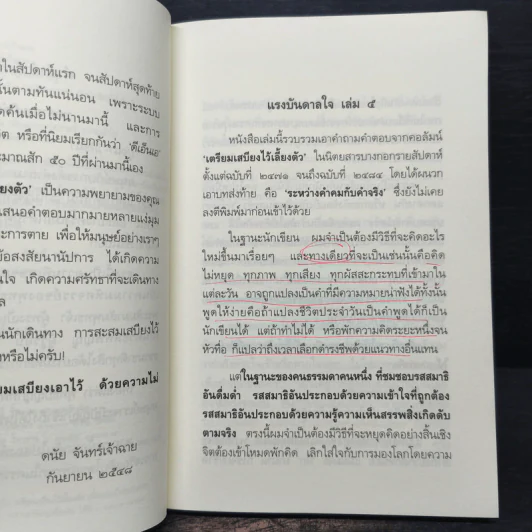 ในสัปดาห์แรก จนสัปดาห์สุดท้าย
นั้นตามทันแน่นอน เพราะระบบ
ค้นเมื่อไม่นานมานี้ และการ
หรือที่นิยมเรียกกันว่า 'ดีเอ็นเอ'
มาณสัก ๕๐ ปีที่ผ่านมานี้เอง
ยงตัว' เป็นความพยายามของคุณ
เสนอคำตอบมากมายหลายแง่มุม
การตาย เพื่อให้มนุษย์อย่างเราๆ
ข้อสงสัยนานัปการ ได้เกิดความ
เกิดความศรัทธาที่จะเดินทาง
ล
นักเดินทาง การสะสมเสบียงไว้
หรือไม่ครับ!
ยมเสบียงเอาไว้ ด้วยความไม่
ดนัย จันทร์เจ้าฉาย
กันยายน ๒๕๔๘
แรงบันดาลใจ เล่ม ๕
หนังสือเล่มนี้รวบรวมเอาคำถามคำตอบจากคอลัมน์
'เตรียมเสบียงไว้เลี้ยงตัว' ในนิตยสารบางกอกรายสัปดาห์
ตั้งแต่ฉบับที่ ๒๔๗๑ จนถึงฉบับที่ ๒๔๘๔ โดยได้ผนวก
เอาบทส่งท้าย คือ 'ระหว่างคำคมกับคำจริง' ซึ่งยังไม่เคย
ลงตีพิมพ์มาก่อนเข้าไว้ด้วย
ในฐานะนักเขียน ผมจำเป็นต้องมีวิธีที่จะคิดอะไร
ใหม่ขึ้นมาเรื่อยๆ และทางเดียวที่จะเป็นเช่นนั้นคือคิด
ไม่หยุด ทุกภาพ ทุกเสียง ทุกผัสสะกระทบที่เข้ามาใน
แต่ละวัน อาจถูกแปลงเป็นคำที่มีความหมายน่าฟังได้ทั้งนั้น
พูดให้ง่ายคือถ้าแปลงชีวิตประจำวันเป็นคำพูดได้ก็เป็น
นักเขียนได้ แต่ถ้าทำไม่ได้ หรือพักความคิดระยะหนึ่งจน
หัวทื่อ ก็แปลว่าถึงเวลาเลือกดำรงชีพด้วยแนวทางอื่นแทน
แต่ในฐานะของคนธรรมดาคนหนึ่ง ที่ชมชอบรสสมาธิ
อันดื่มด่ำ รสสมาธิอันประกอบด้วยความเข้าใจที่ถูกต้อง
รสสมาธิอันประกอบด้วยความรู้ความเห็นสรรพสิ่งเกิดดับ
ตามจริง ตรงนี้ผมจำเป็นต้องมีวิธีที่จะหยุดคิดอย่างสิ้นเชิง
จิตต้องเข้าโหมดพักคิด เลิกใส่ใจกับการมองโลกโดยความ